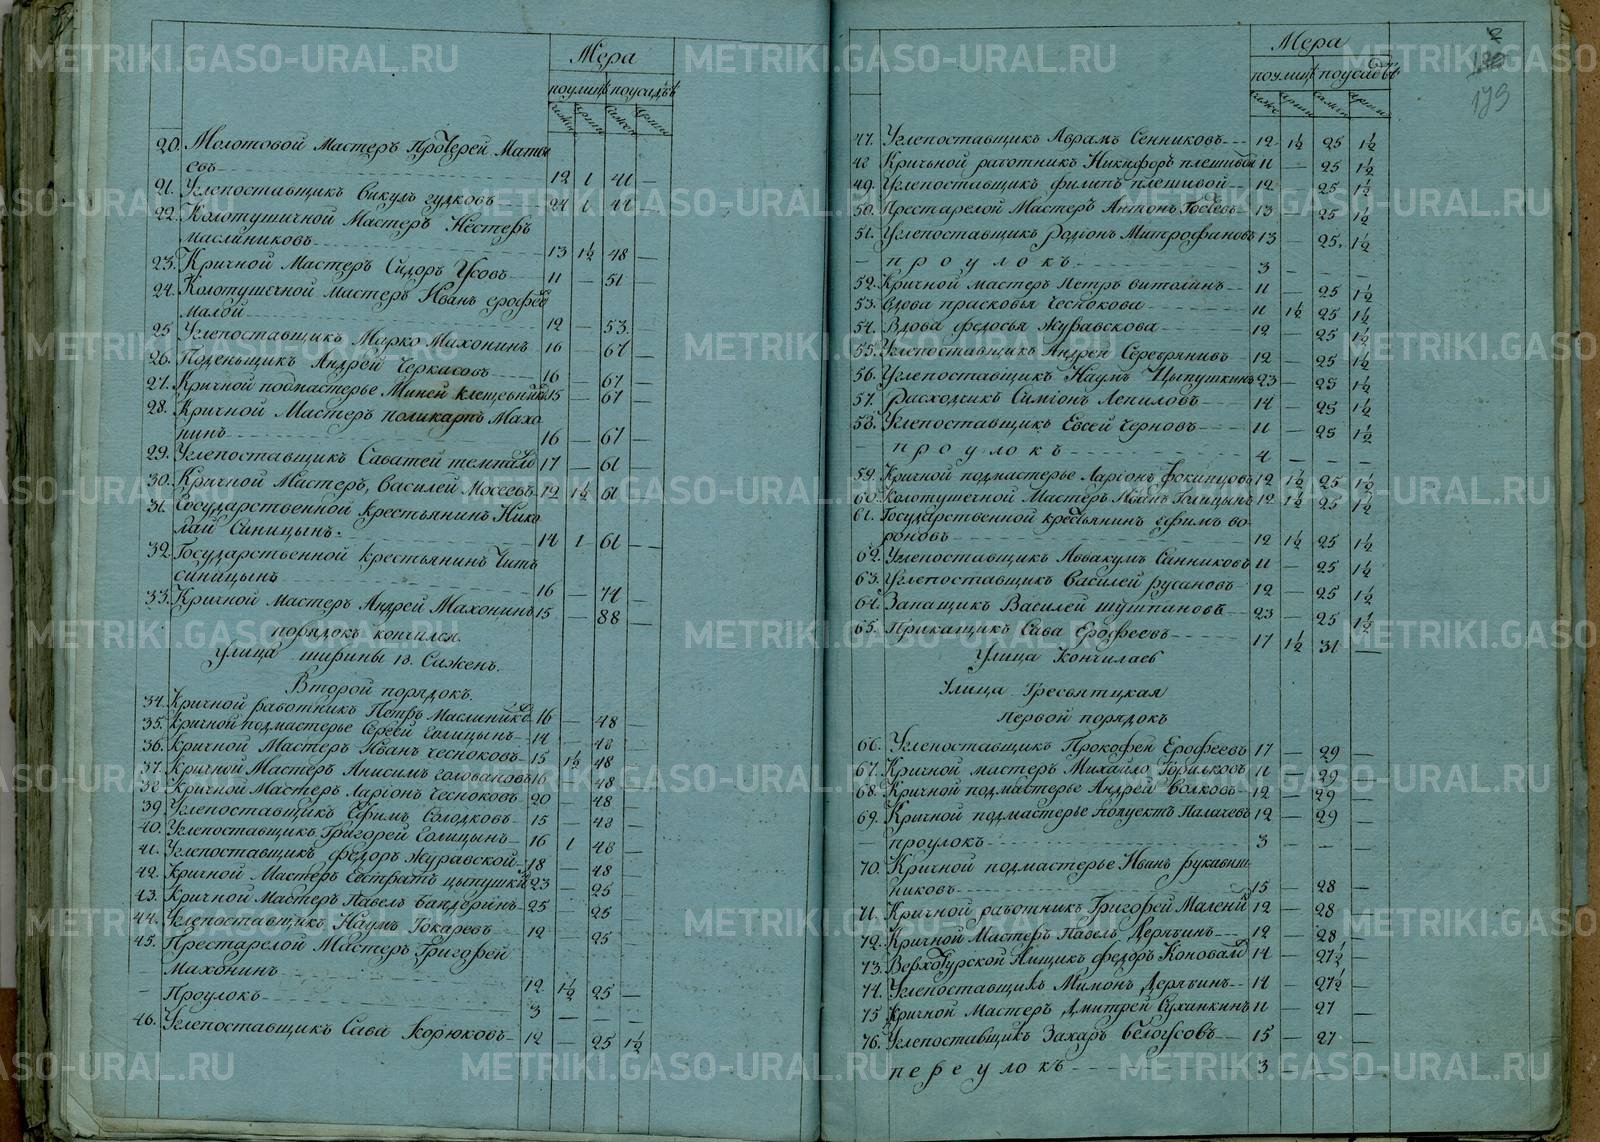 Мера
поулице поусадьбе
сажен аршин сажен аршин
20. Молотовой Мастеръ Прочерей Матве
евъ 12 1 41 —
21. Углепоставщикъ Викулъ гудковъ 24 1 44 —
22. Колотушичной Мастеръ Нестеръ
Маслиниковъ 13 1½ 48 —
23. Кричной Мастеръ Сидоръ Усовъ 11 — 51 —
24. Колотушечной мастеръ Иванъ ерофее
малой 12 — 53 —
25 Углепоставщикъ Марко Махонинъ 16 — 67 —
26. Поденьщикъ Андрей Черкасовъ 16 — 67 —
27. Кричной подмастерье Миней клещевник 15 — 67 —
28. Кричной Мастеръ поликарпъ Махо
нинъ 16 — 67 —
29. Углепоставщикъ Саватей 17 — 61 —
30. Кричной Мастеръ, Василей Мосеевъ 12 1½ 61 —
31. Государственной крестьянинъ Нико
лай Синицынъ 14 1 61 —
32. Государственной крестьянинъ Титъ
синицынъ 16 — 74 —
33. Кричной мастеръ Андрей Махонинъ 15 — 88 —
порядокъ кончился.
Улица ширины 10. Саженъ.
Второй порядокъ.
34. Кричной работникъ Петръ Маслинико 16 — 48 —
35. Кричной подмастерье Сергей Голицынъ 14 — 48 —
36. Кричной Мастеръ Иванъ чесноковъ 15 1½ 48 —
37. Кричной Мастеръ Анисимъ головановъ 16 — 48 —
38 Кричной Мастеръ Ларіонъ чесноковъ 20 — 48 —
39 Углепоставщикъ Ефимъ Солодковъ 15 — 48 —
40. Углепоставщикъ Григорей Голицынъ 16 1 48 —
41. Углепоставщикъ федоръ журавской 18 — 48 —
42. Кричной Мастеръ Естратъ цыпушки 23 — 25 —
43. Кричной Мастеръ Павелъ бандеринъ 25 — 25 —
44. Углепоставщикъ Наумъ Токаревъ 12 — 25 —
45. Престарелой Мастеръ Григорей
Махонинъ 12 1½ 25 —
— Проулокъ 3 — — —
46. Углепоставщикъ Сава Корюковъ 12 — 25 1½
2
173
Мера
поулице поусадьбе
сажен аршин сажен аршин
47. Углепоставщикъ Аврамъ Сенниковъ 12 1½ 25 1½
48 Кричьной работникъ Никифоръ плешивой 11 — 25 1½
49. Углепоставщикъ филипъ плешивой 12 — 25 1½
50. Престарелой Мастеръ Антонъ Госевъ 13 — 25 1½
51. Углепоставщикъ родіонъ Митрофановъ 13 — 25. 1½
— проулокъ 3 — — —
52. Кричной мастеръ Петръ витолинъ 11 — 25 1½
53. вдова прасковья чеснокова 11 1½ 25 1½
54. Вдова федосья журавскова 12 — 25 1½
55. Углепоставщикъ Андрей Серебряничъ 12 — 25 1½
56. Углепоставщикъ Наумъ Цыпушкинъ 23 — 25 1½
57. Расходчикъ Симіонъ Лепиловъ 14 — 25 1½
58. Углепоставщикъ Евсей черновъ 11 — 25 1½
— проулокъ 4 — — —
59. Кричной подмастерье Ларіонъ фокинцовъ 12 1½ 25 1½
60. Колотушечной Мастеръ Иванъ Голицынъ 12 1½ 25 1½
61. Государственной крестьянинъ ефимъ во
роновъ 12 1½ 25 1½
62. Углепоставщикъ Аввакумъ Санниковъ 11 — 25 1½
63. Углепоставщикъ Василей русановъ 12 — 25 1½
64. Запащикъ Василей шушпановъ 23 — 25 1½
65. Прикащикъ Сава Ерофеевъ 17 1½ 31 —
Улица Кончилась
Улица Тресвятцкая
Первой порядокъ
66. Углепоставщикъ Прокофей Ерофеевъ 17 — 29 —
67. Кричной мастеръ Михайло Горилковъ 11 — 29 —
68. Кричной подмастерье Андрей Волковъ 12 — 29 —
69. Кричной подмастерье Полуектъ Палачевъ 12 — 29 —
— проулокъ 3 — — —
70. Кричной подмастерье Иванъ рукавиш
никовъ 15 — 28 —
71. Кричной работникъ Григорей Малени 12 — 28 —
72. Кричной Мастеръ Павелъ Дерябинъ 12 — 28 —
73. Верхотурской Ямщикъ федоръ Коновал 14 — 27½ —
74. Углепоставщикъ Мимонъ Дерябинъ 14 — 27½ —
75 Кричной Мастеръ Дмитрей Суханкинъ 11 — 27 —
76. Углепоставщикъ Захаръ белоусовъ 15 — 27 —
переулокъ 3 — — —
METRIKI.GASO-URAL.RU